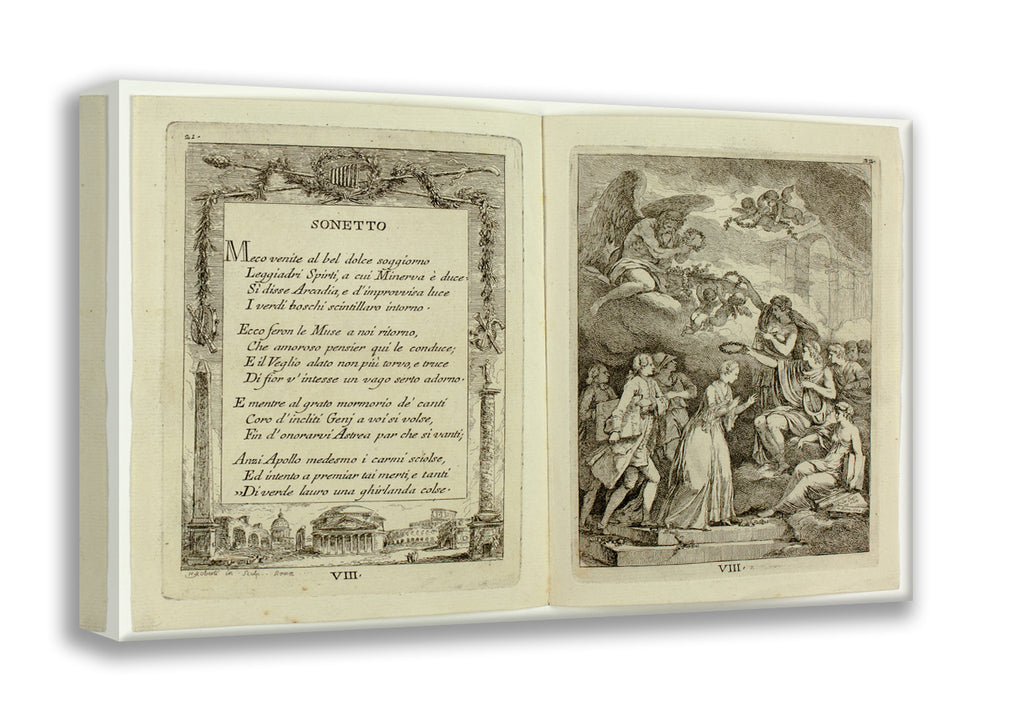 21.
SONETTO
Meco venite al bel dolce soggiorno
Leggiadri Spirti, a cui Minerva è duce.
Sì disse Arcadia, e d'improvvisa luce
I verdi boschi scintillaro intorno.
Ecco feron le Muse a noi ritorno,
Che amoroso pensier quì le conduce;
E il Veglio alato non più torvo, e truce
Di fior v'intesse un vago serto adorno.
E mentre al grato mormorio de' canti
Coro d'incliti Genj a voi si volse,
Fin d'onorarvi Astrea par che si vanti;
Anzi Apollo medesmo i carmi sciolse,
Ed intento a premiar tai merti, e tanti
"Di verde lauro una ghirlanda colse.
Roberti in. Sculp. Roma
VIII.
22.
VIII.